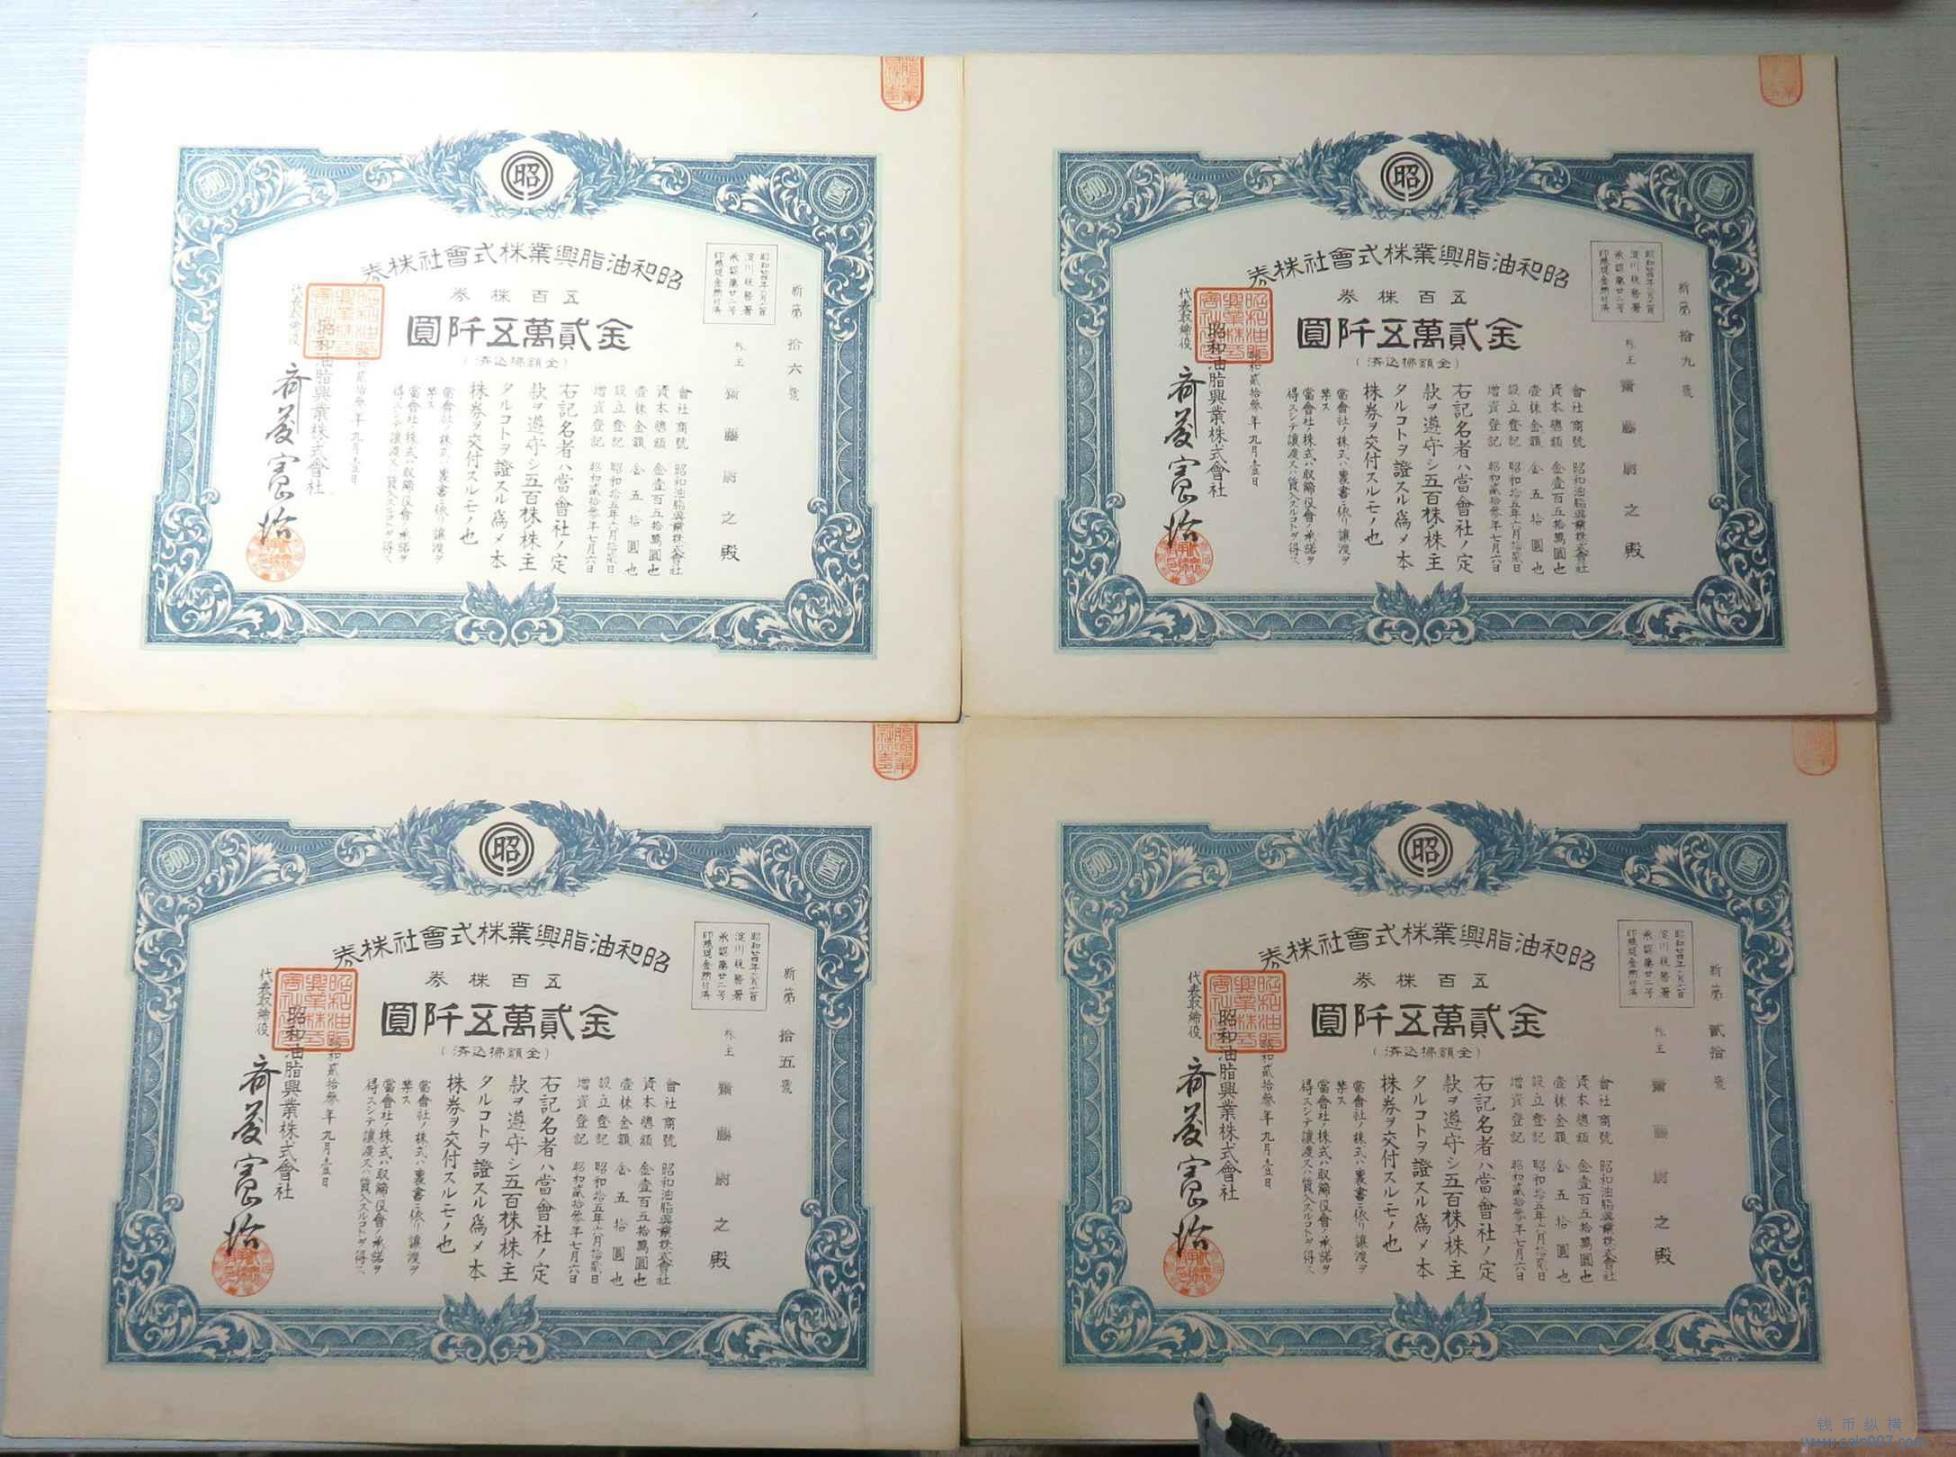 昭
昭和油脂興業株式會社株券
五百株券
金貳萬五阡圓
(全額拂込済)
新第拾六號
株主
藤
之殿
會社商號 昭和油脂興業株式會社
資本總額 金壹百五拾萬圓也
壹株金額 金五拾圓也
設立登記 昭和拾五年六月拾貳日
増資登記 昭和貳拾參年七月六日
右記名者ハ當會社ノ定
款ヲ遵守シ五百株ノ株主
タルコトヲ證スル爲メ本
株券ヲ交付スルモノ也
當會社ノ株式ハ裏書ニ依リ譲渡ヲ
禁ス
當會社ノ株式ハ取締役會ノ承諾ヲ
得スシテ譲渡又ハ質入スルコトヲ得ス
年九月壹日
昭和油脂興業株式會社
代表取締役
500
昭
昭和油脂興業株式會社株券
五百株券
金貳萬五阡圓
(全額拂込済)
新第拾九號
株主
藤
之殿
會社商號 昭和油脂興業株式會社
資本總額 金壹百五拾萬圓也
壹株金額 金五拾圓也
設立登記 昭和拾五年六月拾貳日
増資登記 昭和貳拾參年七月六日
右記名者ハ當會社ノ定
款ヲ遵守シ五百株ノ株主
タルコトヲ證スル爲メ本
株券ヲ交付スルモノ也
當會社ノ株式ハ裏書ニ依リ譲渡ヲ
禁ス
當會社ノ株式ハ取締役會ノ承諾ヲ
得スシテ譲渡又ハ質入スルコトヲ得ス
貳拾參年九月壹日
昭和油脂興業株式會社
代表取締役
500
昭
昭和油脂興業株式會社株券
五百株券
金貳萬五阡圓
(全額拂込済)
新第拾五號
株主
藤
之殿
會社商號 昭和油脂興業株式會社
資本總額 金壹百五拾萬圓也
壹株金額 金五拾圓也
設立登記 昭和拾五年六月拾貳日
増資登記 昭和貳拾參年七月六日
右記名者ハ當會社ノ定
款ヲ遵守シ五百株ノ株主
タルコトヲ證スル爲メ本
株券ヲ交付スルモノ也
當會社ノ株式ハ裏書ニ依リ譲渡ヲ
禁ス
當會社ノ株式ハ取締役會ノ承諾ヲ
得スシテ譲渡又ハ質入スルコトヲ得ス
昭和貳拾參年九月壹日
昭和油脂興業株式會社
代表取締役
500
昭
昭和油脂興業株式會社株券
五百株券
金貳萬五阡圓
(全額拂込済)
新第貳拾號
株主
之殿
會社商號 昭和油脂興業株式會社
資本總額 金壹百五拾萬圓也
壹株金額 金五拾圓也
設立登記 昭和拾五年六月拾貳日
増資登記 昭和貳拾參年七月六日
右記名者ハ當會社ノ定
款ヲ遵守シ五百株ノ株主
タルコトヲ證スル爲メ本
株券ヲ交付スルモノ也
當會社ノ株式ハ裏書ニ依リ譲渡ヲ
禁ス
當會社ノ株式ハ取締役會ノ承諾ヲ
得スシテ譲渡又ハ質入スルコトヲ得ス
昭和貳拾參年九月壹日
昭和油脂興業株式會社
代表取締役
500
钱币纵横
www.coin007.com